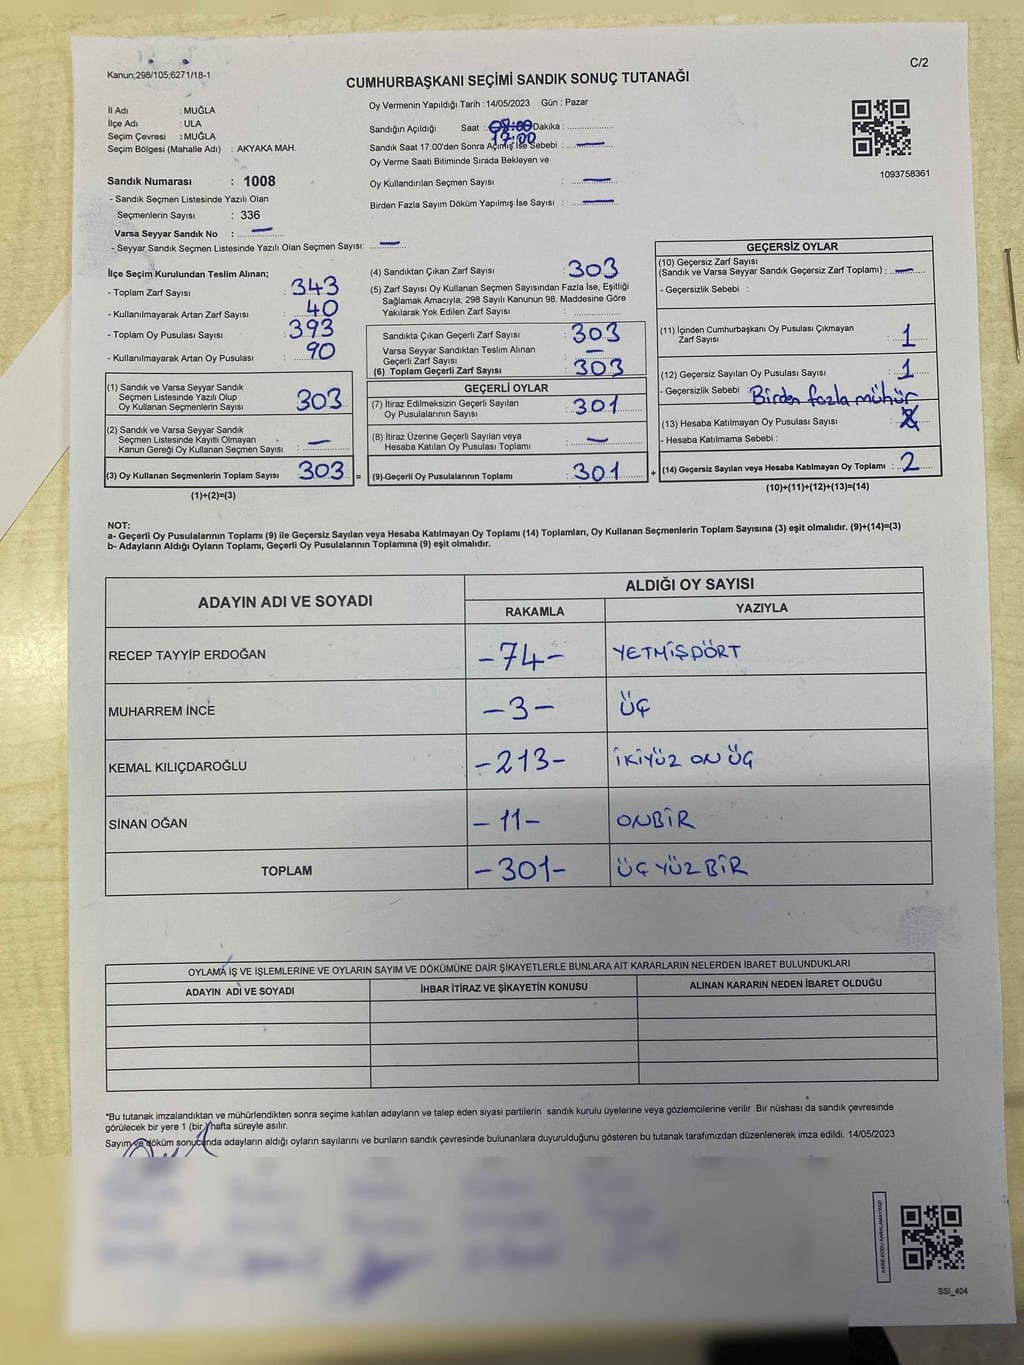 Kanun,298/105;6271/18-1
C/2
CUMHURBAŞKANI SEÇİMİ SANDIK SONUÇ TUTANAĞI
İl Adı : MUĞLA
İlçe Adı : ULA
Seçim Çevresi : MUĞLA
Seçim Bölgesi (Mahalle Adı) : AKYAKA MAH.
Sandık Numarası : 1008
- Sandık Seçmen Listesinde Yazılı Olan
Seçmenlerin Sayısı : 336
Varsa Seyyar Sandık No : —
- Seyyar Sandık Seçmen Listesinde Yazılı Olan Seçmen Sayısı: —
Oy Vermenin Yapıldığı Tarih :14/05/2023 Gün : Pazar
Sandığın Açıldığı Saat : Dakika :
17:00
Sandık Saat 17:00'den Sonra Açılmış İse Sebebi : —
Oy Verme Saati Bitiminde Sırada Bekleyen ve
Oy Kullandırılan Seçmen Sayısı : —
Birden Fazla Sayım Döküm Yapılmış İse Sayısı : —
1093758361
İlçe Seçim Kurulundan Teslim Alınan;
- Toplam Zarf Sayısı : 343
- Kullanılmayarak Artan Zarf Sayısı : 40
- Toplam Oy Pusulası Sayısı : 393
- Kullanılmayarak Artan Oy Pusulası : 90
(1) Sandık ve Varsa Seyyar Sandık
Seçmen Listesinde Yazılı Olup
Oy Kullanan Seçmenlerin Sayısı : 303
(2) Sandık ve Varsa Seyyar Sandık
Seçmen Listesinde Kayıtlı Olmayan
Kanun Gereği Oy Kullanan Seçmen Sayısı : —
(3) Oy Kullanan Seçmenlerin Toplam Sayısı : 303 =
(1)+(2)=(3)
(4) Sandıktan Çıkan Zarf Sayısı : 303
(5) Zarf Sayısı Oy Kullanan Seçmen Sayısından Fazla İse, Eşitliği
Sağlamak Amacıyla; 298 Sayılı Kanunun 98. Maddesine Göre
Yakılarak Yok Edilen Zarf Sayısı :
Sandıkta Çıkan Geçerli Zarf Sayısı : 303
Varsa Seyyar Sandıktan Teslim Alınan
Geçerli Zarf Sayısı : —
(6) Toplam Geçerli Zarf Sayısı : 303
GEÇERLİ OYLAR
(7) İtiraz Edilmeksizin Geçerli Sayılan
Oy Pusulalarının Sayısı : 301
(8) İtiraz Üzerine Geçerli Sayılan veya
Hesaba Katılan Oy Pusulası Toplamı : —
(9)-Geçerli Oy Pusulalarının Toplamı : 301 +
GEÇERSİZ OYLAR
(10) Geçersiz Zarf Sayısı
(Sandık ve Varsa Seyyar Sandık Geçersiz Zarf Toplamı) : —
- Geçersizlik Sebebi :
(11) İçinden Cumhurbaşkanı Oy Pusulası Çıkmayan
Zarf Sayısı : 1
(12) Geçersiz Sayılan Oy Pusulası Sayısı : 1
- Geçersizlik Sebebi : Birden fazla mühür
(13) Hesaba Katılmayan Oy Pusulası Sayısı :
- Hesaba Katılmama Sebebi :
(14) Geçersiz Sayılan veya Hesaba Katılmayan Oy Toplamı : 2
(10)+(11)+(12)+(13)=(14)
NOT:
a- Geçerli Oy Pusulalarının Toplamı (9) ile Geçersiz Sayılan veya Hesaba Katılmayan Oy Toplamı (14) Toplamları, Oy Kullanan Seçmenlerin Toplam Sayısına (3) eşit olmalıdır. (9)+(14)=(3)
b- Adayların Aldığı Oyların Toplamı, Geçerli Oy Pusulalarının Toplamına (9) eşit olmalıdır.
ADAYIN ADI VE SOYADI
ALDIĞI OY SAYISI
RAKAMLA YAZIYLA
RECEP TAYYİP ERDOĞAN -74- YETMİŞDÖRT
MUHARREM İNCE -3- ÜÇ
KEMAL KILIÇDAROĞLU -213- İKİYÜZ ON ÜÇ
SİNAN OĞAN -11- ONBİR
TOPLAM -301- ÜÇ YÜZ BİR
OYLAMA İŞ VE İŞLEMLERİNE VE OYLARIN SAYIM VE DÖKÜMÜNE DAİR ŞİKAYETLERLE BUNLARA AİT KARARLARIN NELERDEN İBARET BULUNDUKLARI
ADAYIN ADI VE SOYADI İHBAR İTİRAZ VE ŞİKAYETİN KONUSU ALINAN KARARIN NEDEN İBARET OLDUĞU
*Bu tutanak imzalandıktan ve mühürlendikten sonra seçime katılan adayların ve talep eden siyasi partilerin sandık kurulu üyelerine veya gözlemcilerine verilir .Bir nüshası da sandık çevresinde
görülecek bir yere 1 (bir) hafta süreyle asılır.
Sayım ve döküm sonucunda adayların aldığı oyların sayılarını ve bunların sandık çevresinde bulunanlara duyurulduğunu gösteren bu tutanak tarafımızdan düzenlenerek imza edildi. 14/05/2023
SSI_404